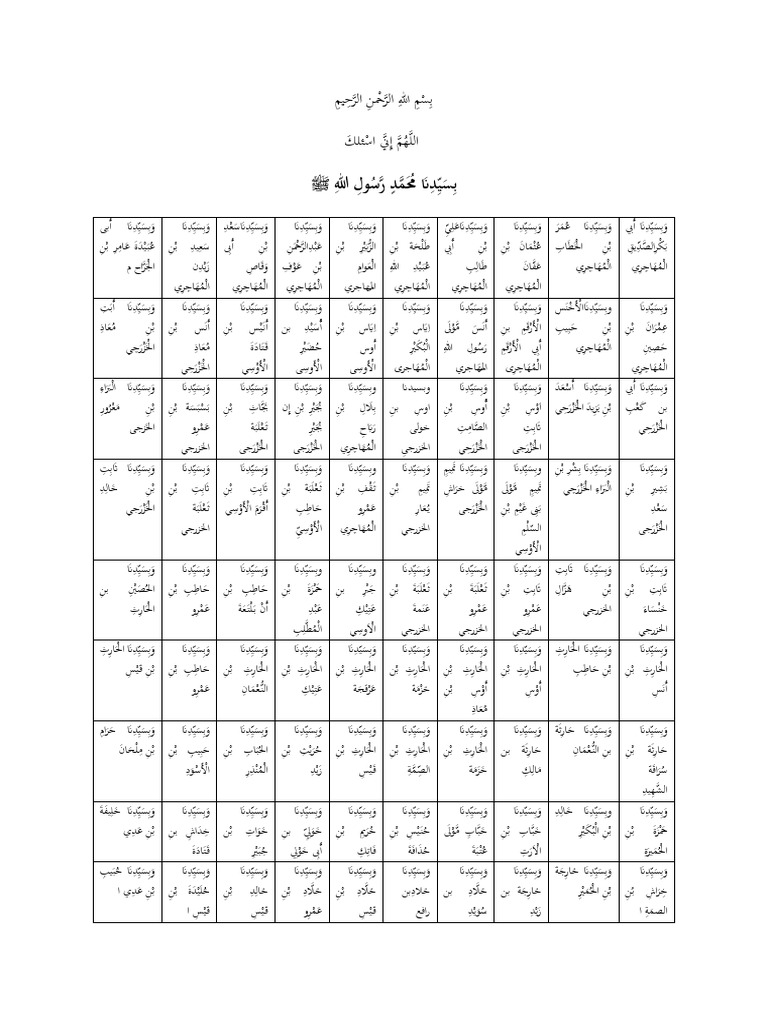 بِسْمِ اللهِ الرَّحْمٰنِ الرَّحِيمِ
اللَّهُمَّ إِنِّيَ اسْئلكَ
بِسَيِّدِنَا مُحَمَّدٍ رَّسُولِ اللهِ ﷺ
وَبِسَيِّدِنَا أَبِي بَكْرِالصِّدِّيقِ الْمُهَاجِرِي
وَبِسَيِّدِنَا عُمَرَ بْنِ الْخَطَّابِ الْمُهَاجِرِي
وَبِسَيِّدِنَا عُثْمَانَ بْنِ عَفَّانَ الْمُهَاجِرِي
وَبِسَيِّدِنَاعَلِيِّ بْنِ أَبِي طَالِبِ الْمُهَاجِرِي
وَبِسَيِّدِنَا طَلْحَةَ بْنِ عُبَيْدِ اللهِ الْمُهَاجِرِي
وَبِسَيِّدِنَا الزُّبَيْرِ بْنِ الْعَوامِ المهاجرى
وَبِسَيِّدِنَا عَبْدِالرَّحْمٰنِ بْنِ عَوْفِ الْمُهَاجِرِي
وَبِسَيِّدِنَاسَعْدِ بْنِ أَبِي وَقَاصِ الْمُهَاجِرِي
وَبِسَيِّدِنَا سَعِيدِ بْنِ زَيْدِن الْمُهَاجِرِي
وَبِسَيِّدِنَا أَبى عُبَيْدَةَ عَامِرِ بْنِ الْجَرَّاحِ م
وَبِسَيِّدِنَا عِمْرَانَ بْنِ حَصِينِ الْمُهَاجِرِي
وَبِسَيِّدِنَاالْأَخْنَسِ بْنِ حَبِيبِ الْمُهَاجِرِي
وَبِسَيِّدِنَا الْأَرْقَمِ بنِ أَبِي الْأَرْقَمِ الْمُهَاجِرِي
وَبِسَيِّدِنَا أَنَسَ مَوْلَى رَسُولِ اللهِ المهاجرى
وَبِسَيِّدِنَا اِيَاسِ بْنِ الْبُكَيْرِ الْمُهَاجِرى
وَبِسَيِّدِنَا اِيَاسِ بْنِ أوس الْأَوْسِى
وَبِسَيِّدِنَا أُسَيْدِ بن حُضَيْرِ الْأَوسِى
وَبِسَيِّدِنَا أُنَيْسِ بْنِ قَتَادَةَ الْأَوْسِى
وَبِسَيِّدِنَا أَنَسِ بْنِ مُعَاذِ الْخَزْرَجِى
وَبِسَيِّدِنَا أُبَتِ بْنِ مُعَاذِ الْخَزْرَجِى
وَبِسَيِّدِنَا أُبَي بن كَعْبِ الْخَزْرَجِي
وَبِسَيِّدِنَا أَسْعَدَ بْنِ يَزِيدَ الْخَزْرَجِي
وَبِسَيِّدِنَا اَوْسِ بْنِ ثَابِتِ الْخَزْرَجِى
وَبِسَيِّدِنَا أَوْسِ بْنِ الصَّامِتِ الْخَزْرَجِى
وبسيدنا اوس بن خولى الخزرجي
وَبِسَيِّدِنَا بِلَالِ بْنِ رَبَاحِ الْمُهَاجِرِي
وَبِسَيِّدِنَا بُجَيْرِ بْنِ إن بُجَيْرِ الْخَزْرَجِى
وَبِسَيِّدِنَا بَحَّاثِ بْنِ ثَعْلَبَةَ الْخَزْرَجِى
وَبِسَيِّدِنَا بَسْبَسَةَ بْنِ عَمْرِو الخزرجي
وَبِسَيِّدِنَا الْبَرَاءِ بْنِ مَعْرُورِ الخرجى
وَبِسَيِّدِنَا بَشِيرِ بْنِ سَعْدِ الْخَزْرَجِى
وَبِسَيِّدِنَا بِشْرِ بْنِ الْبَرَاءِ الْخَزْرَجِي
وَبِسَيِّدِنَا تَمِيمِ مَوْلَى بَنِى غَنْمِ بْنِ السِّلْمِ الْأَوْسِي
وَبِسَيِّدِنَا تَمِيمِ مَوْلَى خَرَاشِ الْخَزْرَجِى
وَبِسَيِّدِنَا تَمِيمِ بْنِ يُعَارِ الخزرجى
وَبِسَيِّدِنَا ثَقْفِ بْنِ عَمْرِو الْمُهَاجِرِي
وَبِسَيِّدِنَا ثَعْلَبَةَ بْنِ حَاطِبِ الْأَوْسِيِّ
وَبِسَيِّدِنَا ثَابِتِ بْنِ أَقْرَمَ الْأَوْسِي
وَبِسَيِّدِنَا ثَابِتِ بْنِ ثَعْلَبَةَ الخزرجي
وَبِسَيِّدِنَا ثَابِتِ بْنِ خَالِدِ الْخَزْرَجِى
وَبِسَيِّدِنَا ثَابِتِ بْنِ خَنْسَاءَ الخزرجي
وَبِسَيِّدِنَا ثَابِتِ بْنِ هَزَّالِ الخزرجي
وبسيدنا ثَابِتِ بْنِ عَمْرِو الخزرجي
وَبِسَيِّدِنَا ثَعْلَبَةَ بْنِ عَمْرِو الخزرجي
وبسيدنا ثَعْلَبَةَ بْنِ عَنَمَةَ الخزرجي
وبسيدنا جَبْرِ بنِ عَتِيْكِ الْاَوسِي
وَبِسَيِّدِنَا حَمْزَةَ بْنِ عَبْدِ الْمُطَّلِبِ
وبسيدنا حَاطِبِ بْنِ أَنْ بَلْتَعَةَ
وَبِسَيِّدِنَا حَاطِبِ بْنِ عَمْرِو
وبسيدنا الحُصَيْنِ بن الْحَارِثِ
وَبِسَيِّدِنَا الْحَارِثِ بْنِ أَنَسِ
وَبِسَيِّدِنَا الْحَارِثِ بْنِ حَاطِبِ
وَبِسَيِّدِنَا الْحَارِثِ بْنِ أَوْسِ
وَبِسَيِّدِنَا الْحَارِثِ بْنِ أَوْسِ بْنِ مُعَاذِ
وَبِسَيِّدِنَا الْحَارِثِ بْنِ خَزْمَة
وَبِسَيِّدِنَا الْحَارِثِ بْنِ عَرْفَجَةَ
وَبِسَيِّدِنَا الْحَارِثِ بْنِ عَتِيْكِ
وَبِسَيِّدِنَا الْحَارِثِ بْنِ النُّعْمَانِ
وَبِسَيِّدِنَا حَاطِبِ بْنِ عَمْرِو
وَبِسَيِّدِنَا الْحَارِثِ بْنِ قَيْسِ
وَبِسَيِّدِنَا حَارِثَةَ بْنِ سُرَاقَة الشَّهِيدِ
وَبِسَيِّدِنَا حَارِثَةَ بن النُّعْمَانِ
وَبِسَيِّدِنَا حَارِثَةَ بن مَالِكِ
وَبِسَيِّدِنَا حَارِثَةَ بن خَزمَةَ
وَبِسَيِّدِنَا الْحَارِثِ بْنِ الصِّمَّةِ
وَبِسَيِّدِنَا الْحَارِثِ بْنِ قَيْسِ
وَبِسَيِّدِنَا حُرَيْثِ بْنِ زَيْدِ
وَبِسَيِّدِنَا الحُبَابِ بْنِ الْمُنْذِرِ
وَبِسَيِّدِنَا حَبِيبِ بْنِ الْأَسْوَدِ
وَبِسَيِّدِنَا حَرَامِ بْنِ مِلْحَانَ
وَبِسَيِّدِنَا حَمْزَةَ بْنِ الْحُمَيرَة
وبسيدنا خَالِدِ بْنِ الْبُكَيْرِ
وَبِسَيِّدِنَا خَبَّابِ بْنِ الْاَرَتِ
وَبِسَيِّدِنَا خَبَّابِ مَوْلَى عُتْبَةَ
وَبِسَيِّدِنَا خُنَيْسِ بْنِ حُذَافَةَ
وَبِسَيِّدِنَا خُرَيْمِ بْنِ فَاتِكِ
وَبِسَيِّدِنَا خَوْلِيِّ بن أَبِى خَوْلِي
وَبِسَيِّدِنَا خَوَاتِ بْنِ جُبَيْرِ
وَبِسَيِّدِنَا خِدَاشِ بن قَتَادَةَ
وَبِسَيِّدِنَا خَلِيفَةَ بْنِ عَدِي
وَبِسَيِّدِنَا خِرَاشِ بْنِ الصمَةِ ا
وَبِسَيِّدِنَا خَارِجَةَ بْنِ الْحُمَيْرِ
وَبِسَيِّدِنَا خَارِجَةَ بن زَيْدِ
وَبِسَيِّدِنَا خَلَّادِ بن سُوَيْدِ
وَبِسَيِّدِنَا خلادِبن رافع
وَبِسَيِّدِنَا خَلَّادِ بْنِ قَيْسِ
وَبِسَيِّدِنَا خَلَّادِ بْنِ عَمْرِو
وَبِسَيِّدِنَا خَالِدِ بْنِ قَيْسِ
وَبِسَيِّدِنَا خُلَيْدَةَ بْنِ قَيْسِ ا
وَبِسَيِّدِنَا خُبَيبِ بْنِ عَدِي ا